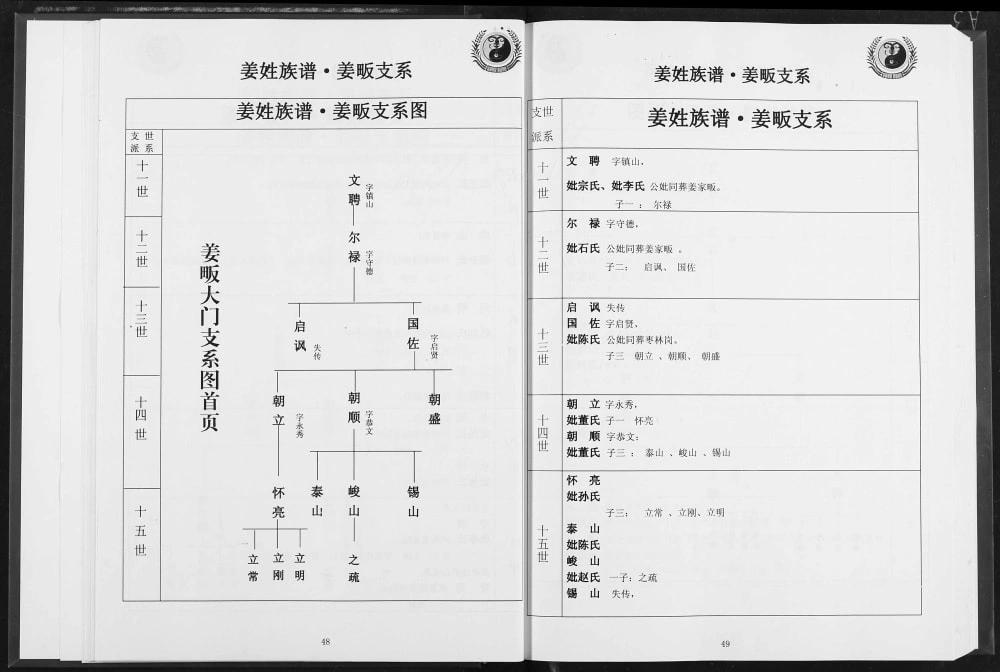 姜姓族谱·姜畈支系
姜姓族谱·姜畈支系图
支世
派系
十一世
十二世
十三世
十四世
十五世
姜畈大门支系图首页
文聘 字镇山
尔禄 字守德
启讽 失传
国佐 字启贤
朝立 字永秀
朝顺 字恭文
朝盛
怀亮
泰山
峻山
锡山
立常
立刚
立明
之疏
48
A3
姜姓族谱·姜畈支系
支世
派系
姜姓族谱·姜畈支系
十一世
文 聘 字镇山,
妣宗氏、妣李氏 公妣同葬姜家畈。
子一: 尔禄
十二世
尔 禄 字守德,
妣石氏 公妣同葬姜家畈 。
子二: 启讽、 国佐
十三世
启 讽 失传
国 佐 字启贤,
妣陈氏 公妣同葬枣林岗。
子三 朝立 、朝顺、 朝盛
十四世
朝 立 字永秀,
妣董氏 子一 怀亮
朝 顺 字恭文:
妣董氏 子三: 泰山 、峻山 、锡山
十五世
怀 亮
妣孙氏
子三: 立常 、立刚、立明
泰 山
妣陈氏
峻 山
妣赵氏 一子:之疏
锡 山 失传,
49